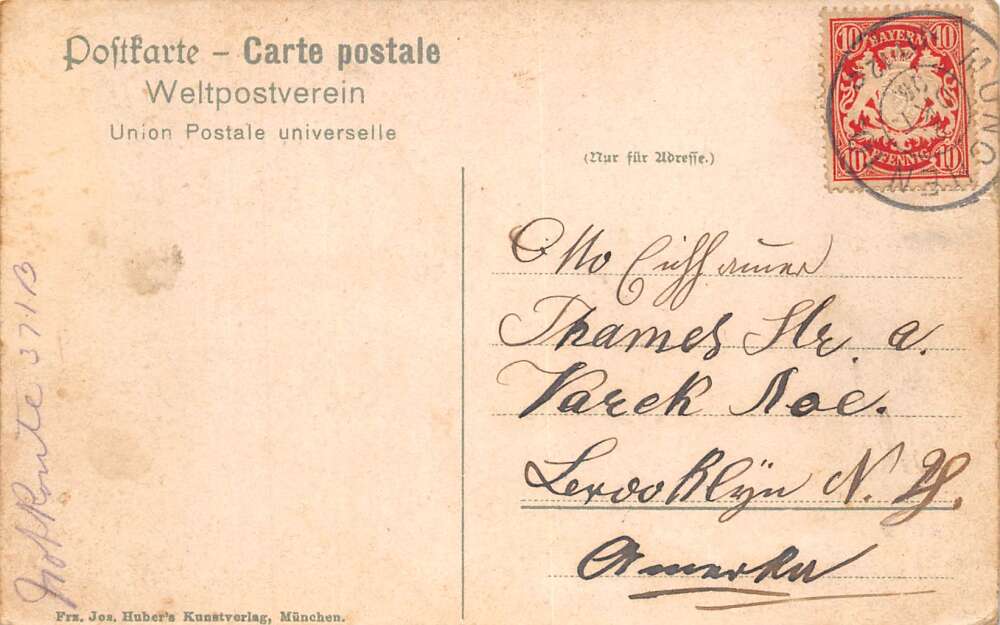 Postkarte – Carte postale
Weltpostverein
Union Postale universelle
(Nur für Adresse.)
10 BAYERN 10
10 PFENNIG 10
MÜNCHEN
Otto
Thames Str. a.
Varek Ave.
Brooklÿn N. Y.
Amerka
Not Route 371B
Frz. Jos. Huber's Kunstverlag, München.